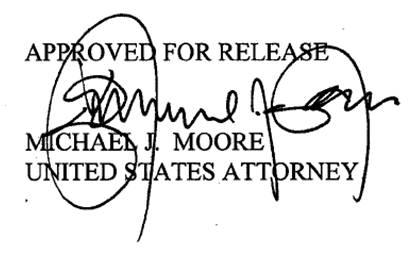 APPROVED FOR RELEASE
MICHAEL J. MOORE
UNITED STATES ATTORNEY